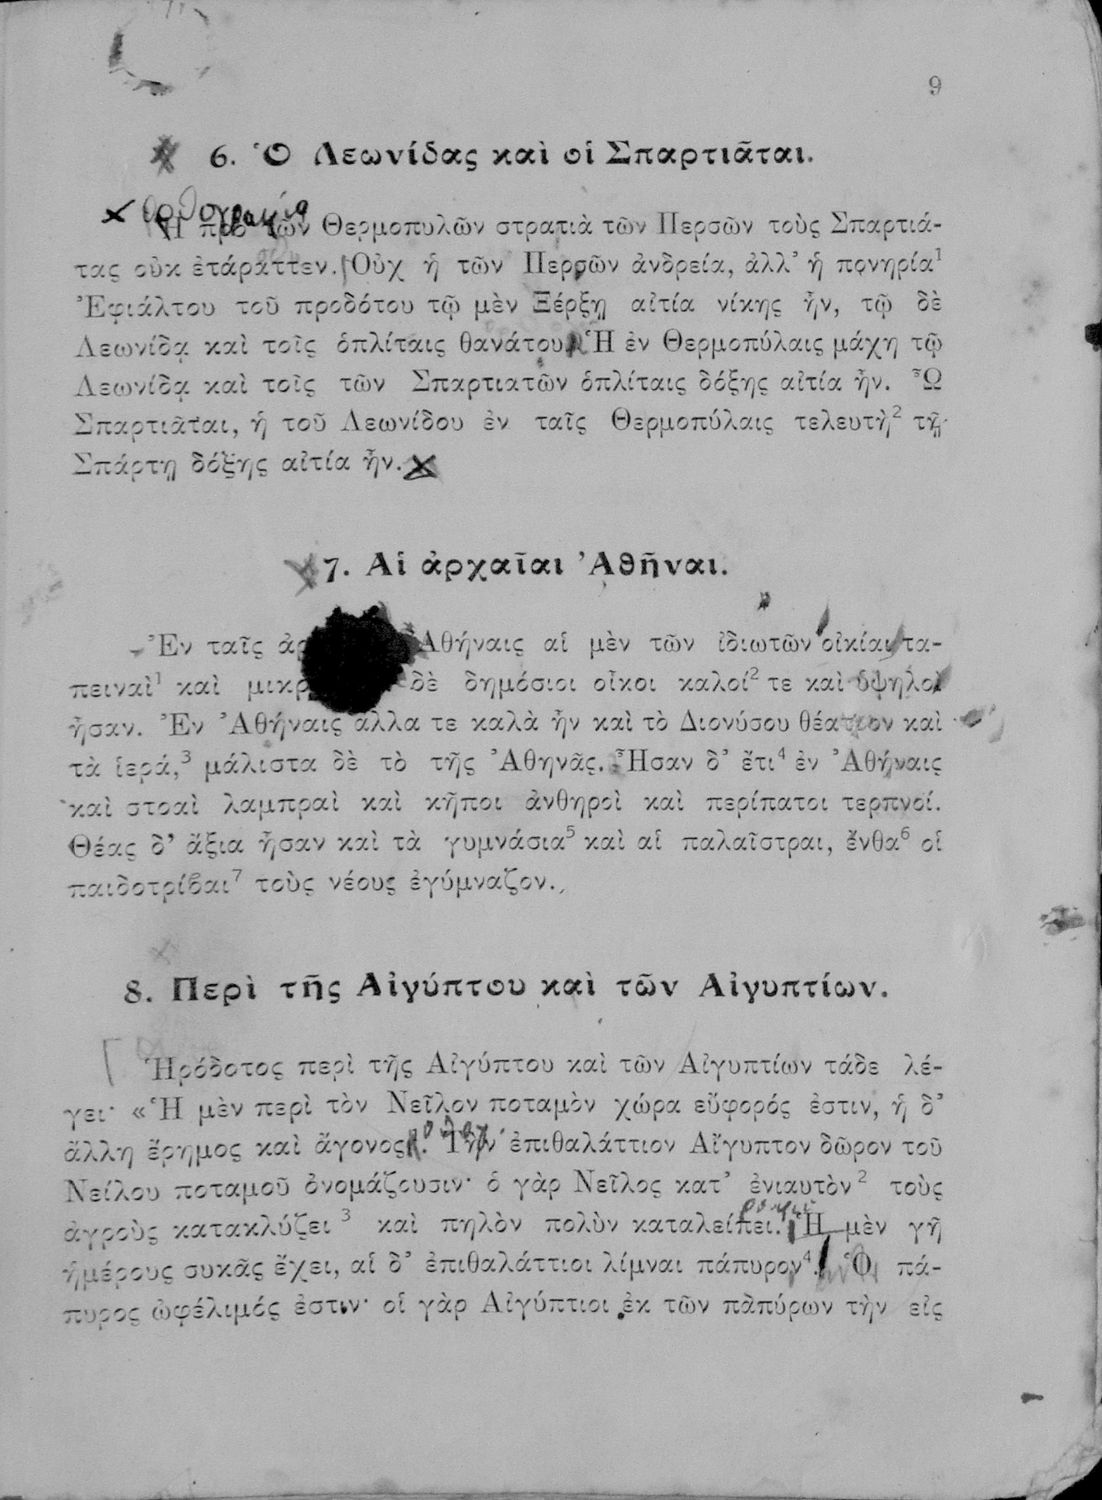 9
6. Ὁ Λεωνίδας καὶ οἱ Σπαρτιᾶται.
ὀρθογραφία
Ἡ πρὸ τῶν Θερμοπυλῶν στρατιὰ τῶν Περσῶν τοὺς Σπαρτιά-
τας οὐκ ἐτάραττεν. Οὐχ ἡ τῶν Περσῶν ἀνδρεία, ἀλλ’ ἡ πονηρία¹
Ἐφιάλτου τοῦ προδότου τῷ μὲν Ξέρξῃ αἰτία νίκης ἦν, τῷ δὲ
Λεωνίδᾳ καὶ τοῖς ὁπλίταις θανάτου. Ἡ ἐν Θερμοπύλαις μάχη τῷ
Λεωνίδᾳ καὶ τοῖς τῶν Σπαρτιατῶν ὁπλίταις δόξης αἰτία ἦν. Ὦ
Σπαρτιᾶται, ἡ τοῦ Λεωνίδου ἐν ταῖς Θερμοπύλαις τελευτὴ² τῇ
Σπάρτῃ δόξης αἰτία ἦν.
7. Αἱ ἀρχαῖαι Ἀθῆναι.
Ἐν ταῖς Ἀθήναις αἱ μὲν τῶν ἰδιωτῶν οἰκίαι τα-
πειναὶ¹ καὶ δὲ δημόσιοι οἶκοι καλοί² τε καὶ ὑψηλοὶ
ἦσαν. Ἐν Ἀθήναις ἄλλα τε καλὰ ἦν καὶ τὸ Διονύσου θέατρον καὶ
τὰ ἱερά,³ μάλιστα δὲ τὸ τῆς Ἀθηνᾶς. Ἦσαν δ’ ἔτι⁴ ἐν Ἀθήναις
καὶ στοαὶ λαμπραὶ καὶ κῆποι ἀνθηροὶ καὶ περίπατοι τερπνοί.
Θέας δ’ ἄξια ἦσαν καὶ τὰ γυμνάσια⁵ καὶ αἱ παλαῖστραι, ἔνθα⁶ οἱ
παιδοτρίβαι⁷ τοὺς νέους ἐγύμναζον.
8. Περὶ τῆς Αἰγύπτου καὶ τῶν Αἰγυπτίων.
Ἡρόδοτος περὶ τῆς Αἰγύπτου καὶ τῶν Αἰγυπτίων τάδε λέ-
γει· «Ἡ μὲν περὶ τὸν Νεῖλον ποταμὸν χώρα εὔφορός ἐστιν, ἡ δ’
ἄλλη ἔρημος καὶ ἄγονος. Τὴν ἐπιθαλάττιον Αἴγυπτον δῶρον τοῦ
Νείλου ποταμοῦ ὀνομάζουσιν· ὁ γὰρ Νεῖλος κατ’ ἐνιαυτὸν² τοὺς
ἀγροὺς κατακλύζει³ καὶ πηλὸν πολὺν καταλείπει. Ἡ μὲν γῆ
ἡμέρους συκᾶς ἔχει, αἱ δ’ ἐπιθαλάττιοι λίμναι πάπυρον⁴. Ὁ πά-
πυρος ὠφέλιμός ἐστιν· οἱ γὰρ Αἰγύπτιοι ἐκ τῶν παπύρων τὴν εἰς